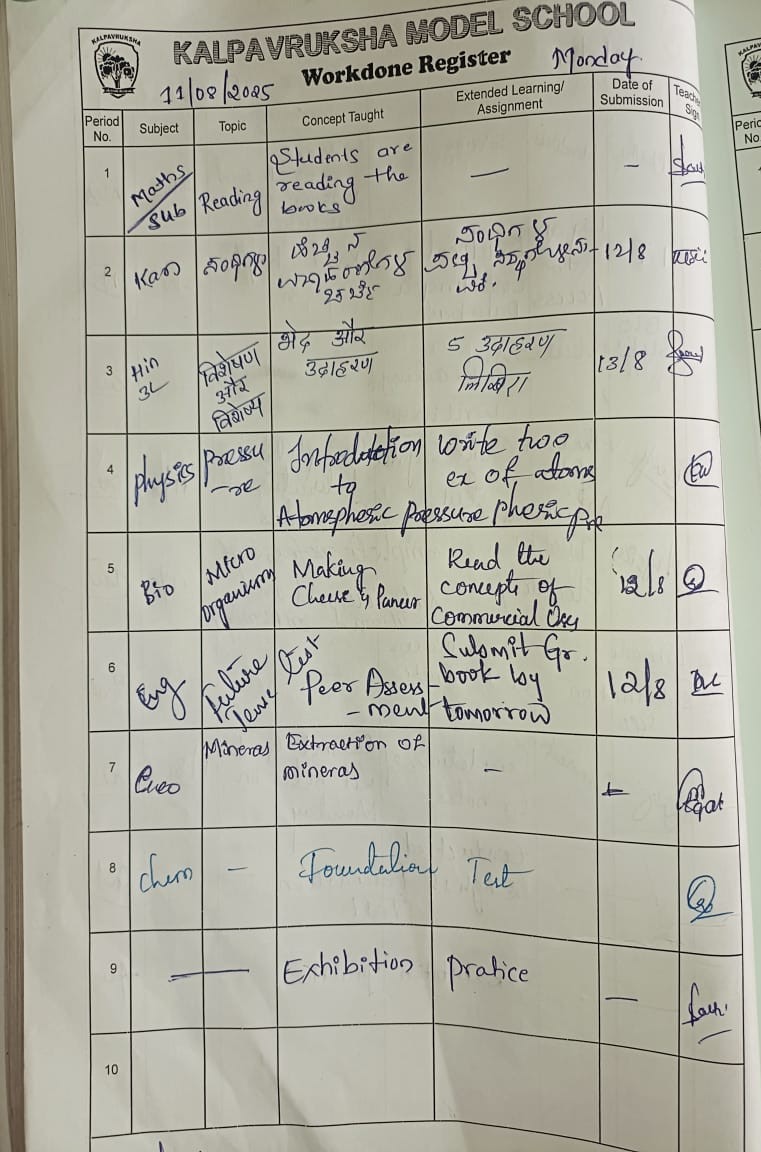 KALPAVRUKSHA
KALPAVRUKSHA MODEL SCHOOL
Workdone Register
11/08/2025
Monday
Period No.
Subject
Topic
Concept Taught
Extended Learning/ Assignment
Date of Submission
1
Maths/Sub
Reading
Students are
reading the
books
—
–
2
Kan
12/8
3
Hin
3L
विशेषण
और
विशेष्य
भेद और
उदाहरण
5 उदाहरण
लिखिए।
13/8
4
Physics
Pressu
-re
to
Atomspheric Pressure
Write two
ex of atoms
pheric Pre
5
Bio
Micro
organism
Making
Cheese & Paneer
Read the
concept of
Commercial
12/8
6
Eng
Future
Tense
Test
Peer Assess
-ment
Submit Gr.
book by
tomorrow
12/8
7
Mineras
Extraction of
mineras
–
8
Chem
–
Foundation Test
9
—
Exhibition Pratice
—
10